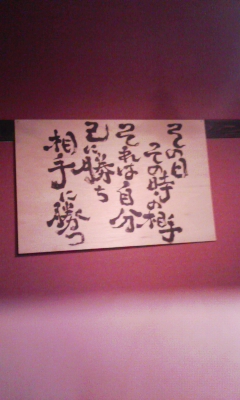 その日
その時の相手
それは自分
己に勝ち
相手に勝つ